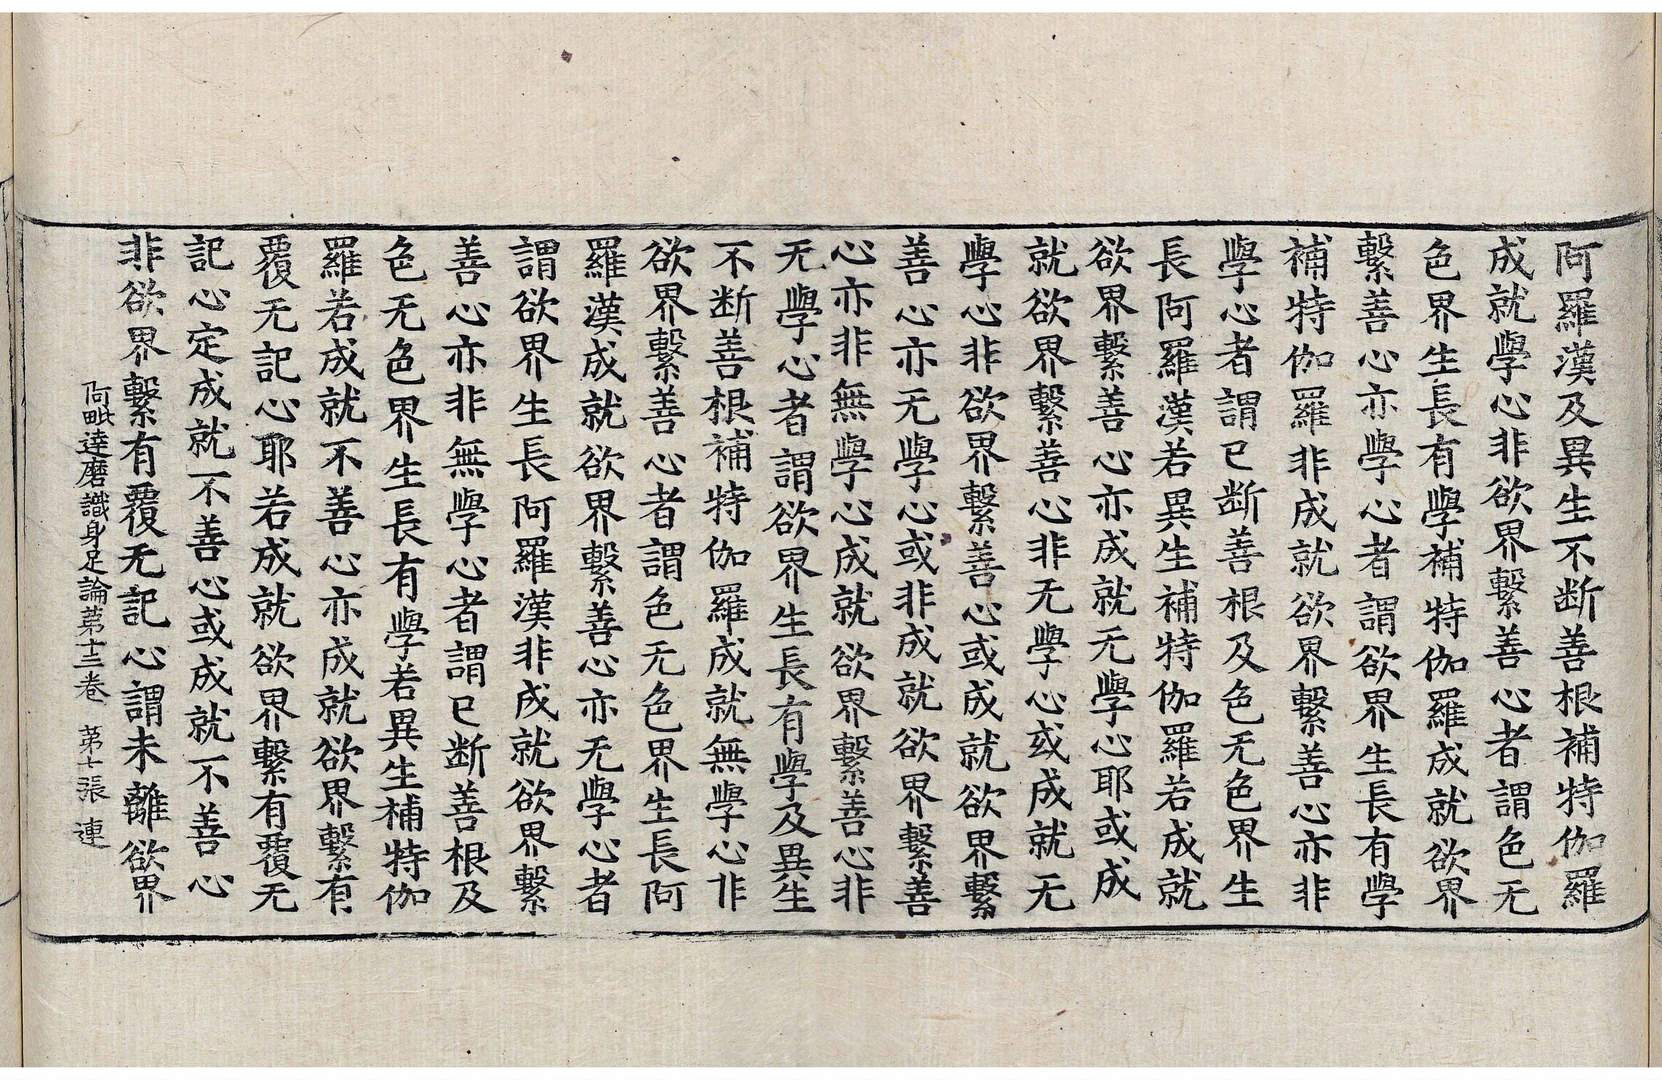 阿羅漢及異生不断善根補特伽羅
成就學心非欲界繫善心者謂色无
色界生長有學補特伽羅成就欲界
繫善心亦學心者謂欲界生長有學
補特伽羅非成就欲界繫善心亦非
學心者謂已断善根及色无色界生
長阿羅漢若異生補特伽羅若成就
欲界繫善心亦成就无學心耶或成
就欲界繫善心非无學心或成就无
學心非欲界繫善心或成就欲界繫
善心亦无學心或非成就欲界繫善
心亦非無學心成就欲界繫善心非
无學心者謂欲界生長有學及異生
不断善根補特伽羅成就無學心非
欲界繫善心者謂色无色界生長阿
羅漢成就欲界繫善心亦无學心者
謂欲界生長阿羅漢非成就欲界繫
善心亦非無學心者謂已断善根及
色无色界生長有學若異生補特伽
羅若成就不善心亦成就欲界繫有
覆无記心耶若成就欲界繫有覆无
記心定成就不善心或成就不善心
非欲界繫有覆无記心謂未離欲界
阿毗達磨識身足論苐十三卷 苐十張 連